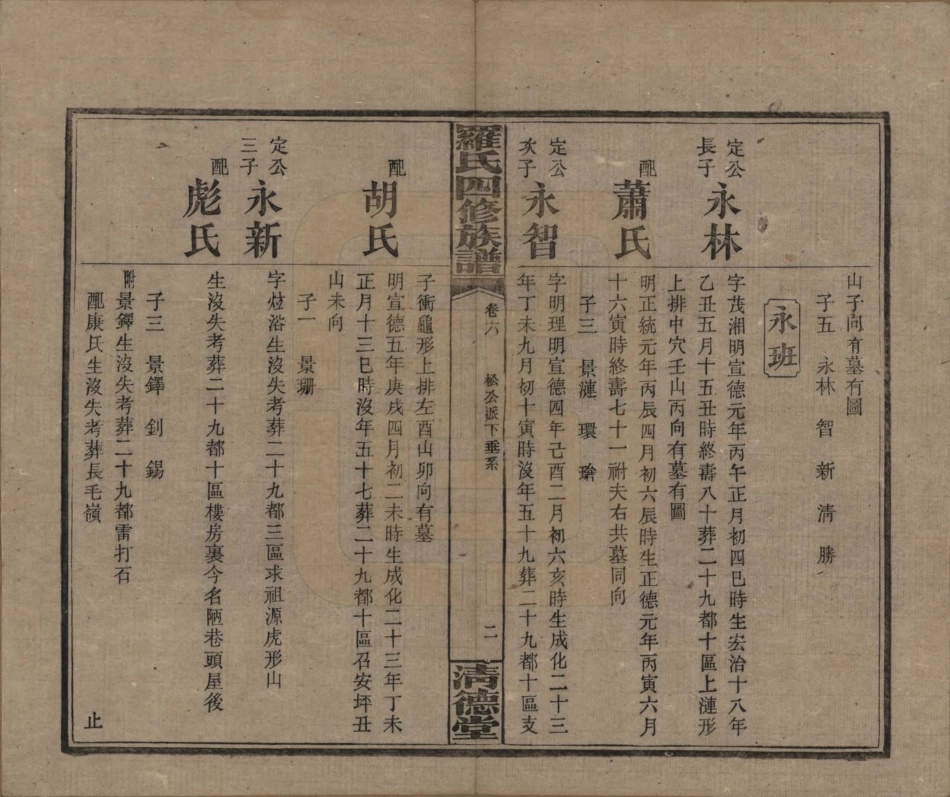 山子向有墓有圖
子五　永林　智　新　清　勝
永班
定公長子
永林
字茂湘明宣德元年丙午正月初四巳時生宏治十八年
乙丑五月十五丑時終壽八十葬二十九都十區上漣形
上排中穴壬山丙向有墓有圖
配
蕭氏
明正統元年丙辰四月初六辰時生正德元年丙寅六月
十六寅時終壽七十一祔夫右共墓同向
子三　景漣　環
定公次子
永智
字明理明宣德四年己酉二月初六亥時生成化二十三
年丁未九月初十寅時沒年五十九葬二十九都十區支
羅氏四修族譜
卷六
松公派下垂系
二
清德堂
子衝龜形上排左酉山卯向有墓
配
胡氏
明宣德五年庚戌四月初二未時生成化二十三年丁未
正月十三巳時沒年五十七葬二十九都十區召安坪丑
山未向
子一　景珊
定公三子
永新
字炷浴生沒失考葬二十九都三區求祖源虎形山
配
彪氏
生沒失考葬二十九都十區樓房裏今名陋巷頭屋後
子三　景鐸　釗　錫
附景鐸生沒失考葬二十九都雷打石
配康氏生沒失考葬長毛嶺
止